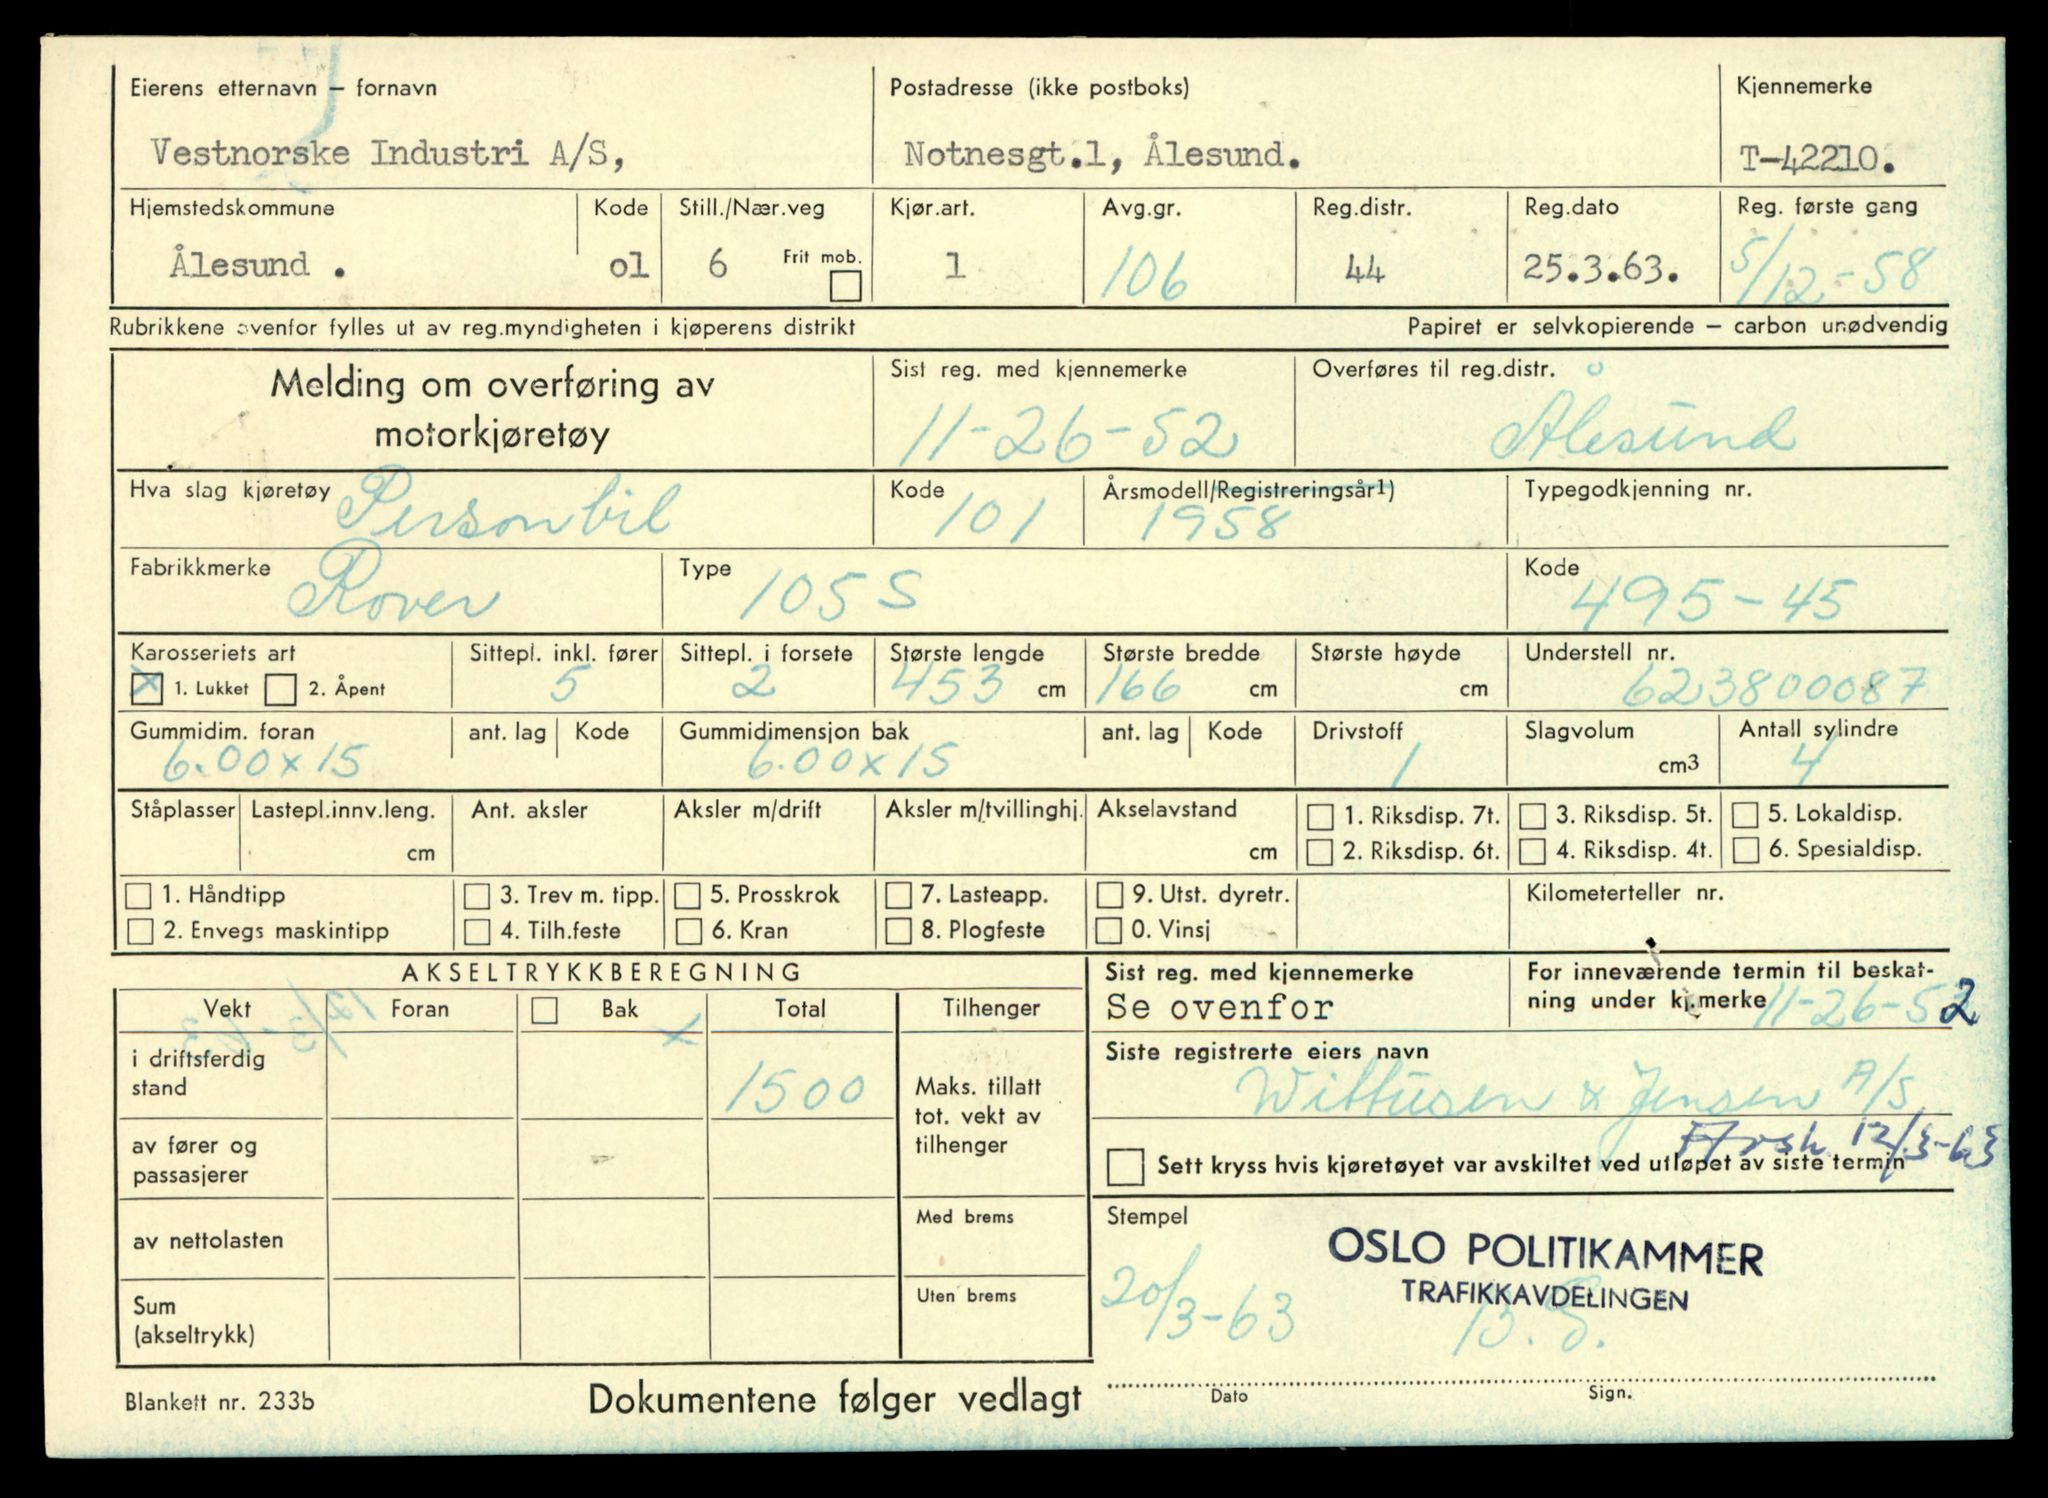 Eierens etternavn – fornavn Postadresse (ikke postboks) Kjennemerke
Vestnorske Industri A/S, Notnesgt.1, Ålesund. T-42210.
Hjemstedskommune Kode Still./Nær.veg Kjør.art. Avg.gr. Reg.distr. Reg.dato Reg. første gang
Ålesund . o1 6 Frit mob. 1 106 44 25.3.63. 5/12-58
Rubrikkene ovenfor fylles ut av reg.myndigheten i kjøperens distrikt Papiret er selvkopierende – carbon unødvendig
Melding om overføring av Sist reg. med kjennemerke Overføres til reg.distr.
motorkjøretøy 11-26-52 Ålesund
Hva slag kjøretøy Personbil Kode 101 Årsmodell/Registreringsår1) 1958 Typegodkjenning nr.
Fabrikkmerke Rover Type 105 S Kode 495-45
Karosseriets art Sittepl. inkl. fører Sittepl. i forsete Største lengde Største bredde Største høyde Understell nr.
x 1. Lukket 2. Åpent 5 2 453 cm 166 cm cm 623800087
Gummidim. foran ant. lag Kode Gummidimensjon bak ant. lag Kode Drivstoff Slagvolum Antall sylindre
6.00x15 6.00x15 1 cm3 4
Ståplasser Lastepl.innv.leng. Ant. aksler Aksler m/drift Aksler m/tvillinghj. Akselavstand 1. Riksdisp. 7t. 3. Riksdisp. 5t. 5. Lokaldisp.
cm cm 2. Riksdisp. 6t. 4. Riksdisp. 4t. 6. Spesialdisp.
1. Håndtipp 3. Trev m. tipp. 5. Prosskrok 7. Lasteapp. 9. Utst. dyretr. Kilometerteller nr.
2. Envegs maskintipp 4. Tilh.feste 6. Kran 8. Plogfeste 0. Vinsj
AKSELTRYKKBEREGNING Sist reg. med kjennemerke For inneværende termin til beskat-
Vekt Foran Bak Total Tilhenger Se ovenfor ning under kj.merke 11-26-52
12/3-63 x
i driftsferdig stand 1500 Maks. tillatt tot. vekt av tilhenger Siste registrerte eiers navn
Wittusen & Jensen A/S
12/3-63
av fører og passasjerer Sett kryss hvis kjøretøyet var avskiltet ved utløpet av siste termin
av nettolasten Med brems Stempel OSLO POLITIKAMMER
TRAFIKKAVDELINGEN
Sum (akseltrykk) Uten brems 20/3-63
Blankett nr. 233b Dokumentene følger vedlagt Dato Sign.